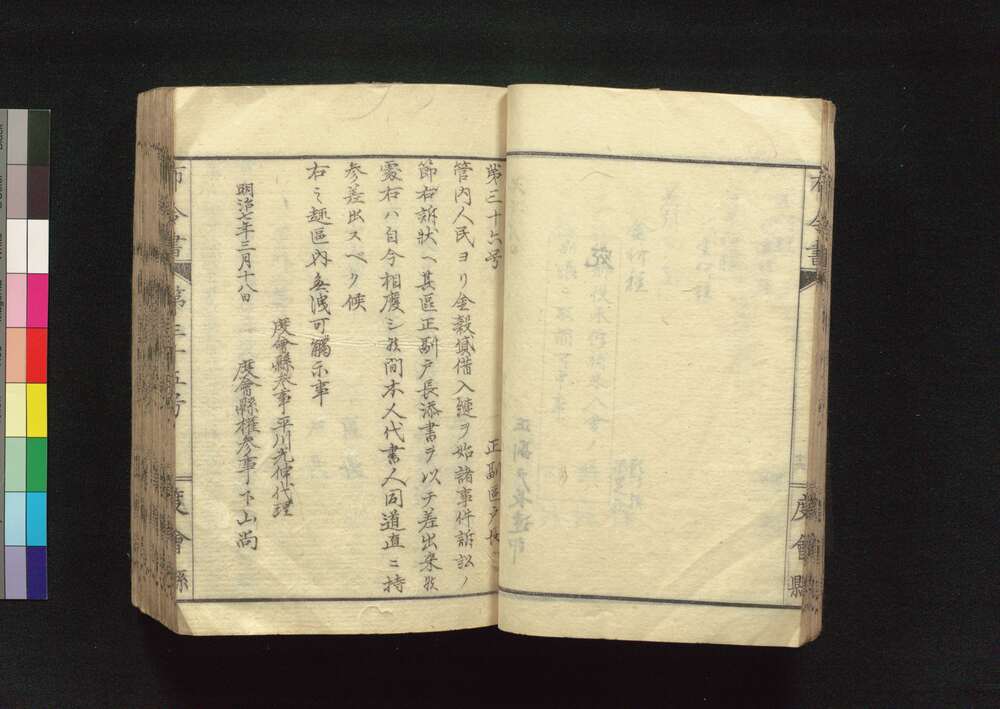 布令書
度會縣
第三十六号
正副區戸長
管内人民ヨリ金穀貸借入縺ヲ始諸事件訴訟ノ
節右訴状ヘ其區正副戸長添書ヲ以テ差出来候
處右ハ自今相廃シ候間本人代書人同道直ニ持
参差出スベク候
右之趣區内無洩可觸示事
度會縣参事平川光伸代理
明治七年三月十八日 度會縣權参事下山尚
布令書 第三十五号 度會縣